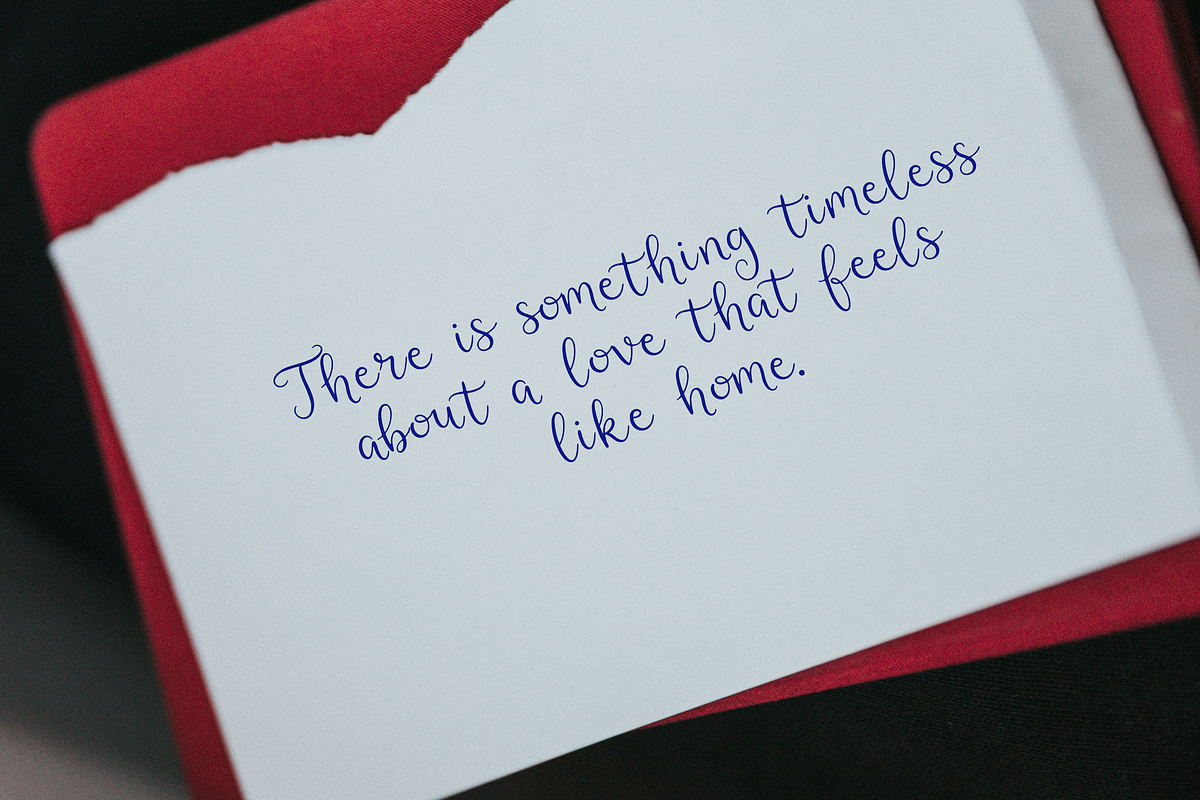 There is something timeless
about a love that feels
like home.